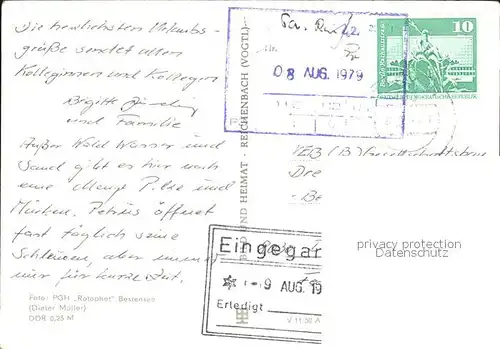 Die herzlichsten Urlaubs-
grüße sendet allen
Kolleginnen und Kollegen
Brigitte
und Familie
Außer Wald Wasser und
Sand gibt es hier noch
eine Menge Pilze und
Mücken. Petrus öffnet
fast täglich seine
Schleusen, aber immer
nur für kurze Zeit.
Foto: PGH "Rotophot" Bestensee
(Dieter Müller)
DDR 0,25 M
BILD UND HEIMAT · REICHENBACH (VOGTL)
V 11 50 A
08 AUG. 1979
10
DEUTSCHE DEMOKRATISCHE REPUBLIK
VEB (B)
Dre
- Be
privacy protection
Datenschutz
Eingegan
- 9 AUG. 19
Erledigt